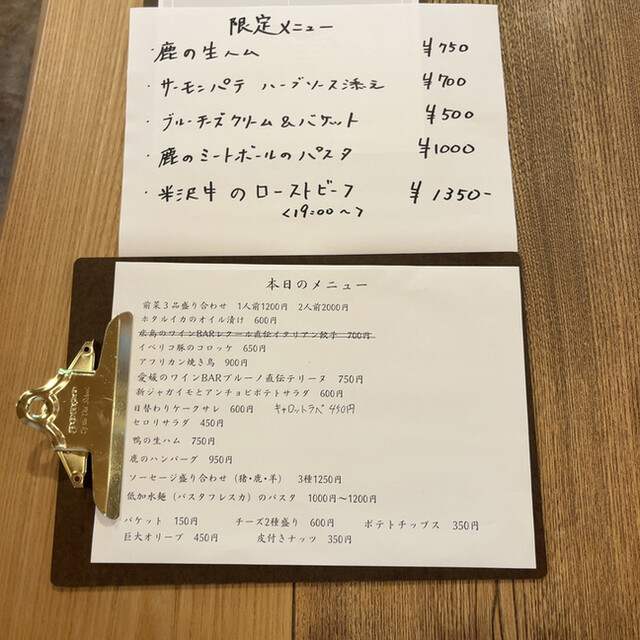 限定メニュー
・鹿の生ハム ¥750
・サーモンパテ ハーブソース添え ¥700
・ブルーチーズクリーム&バケット ¥500
・鹿のミートボールのパスタ ¥1000
・米沢牛のローストビーフ ¥1350-
<19:00〜>
本日のメニュー
前菜3品盛り合わせ 1人前1200円 2人前2000円
ホタルイカのオイル漬け 600円
広島のワインBARレクール直伝イタリアン餃子 700円
イベリコ豚のコロッケ 650円
アフリカン焼き鳥 900円
愛媛のワインBARブルーノ直伝テリーヌ 750円
新ジャガイモとアンチョビポテトサラダ 600円
日替わりケークサレ 600円 キャロットラペ 450円
セロリサラダ 450円
鴨の生ハム 750円
鹿のハンバーグ 950円
ソーセージ盛り合わせ(猪・鹿・羊) 3種1250円
低加水麺(パスタフレスカ)のパスタ 1000円〜1200円
バケット 150円 チーズ2種盛り 600円 ポテトチップス 350円
巨大オリーブ 450円 皮付きナッツ 350円